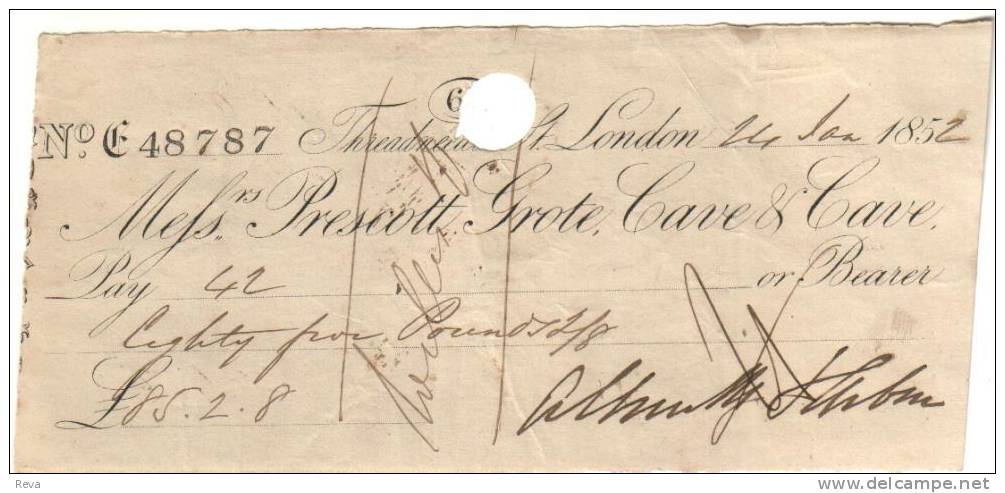 6
No. E 48787 Threadneedle St. London 24 Jan 1852
Messrs. Prescott, Grote, Cave & Cave,
Pay 42 or Bearer
Eighty five Pounds 2/8
£85.2.8
Reva
www.delcampe.net